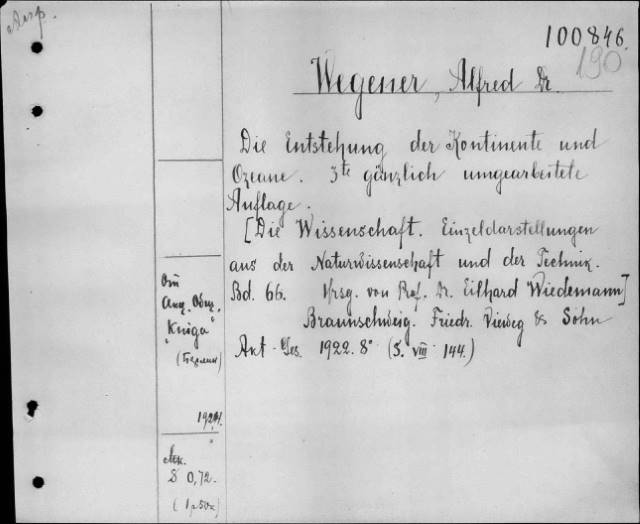 100846.
190
Wegener, Alfred Dr.
Die Entstehung der Kontinente und
Ozeane. 3te gänzlich umgearbeitete
Auflage.
[Die Wissenschaft. Einzeldarstellungen
aus der Naturwissenschaft und der Technik.
Bd. 66. Hrsg. von Prof. Dr. Eilhard Wiedemann]
Braunschweig. Friedr. Vieweg & Sohn
Akt-Ges. 1922. 8° (S. VIII 144.)
От
Акц. Общ.
"Книга"
(Берлин)
1924.
$ 0,72.